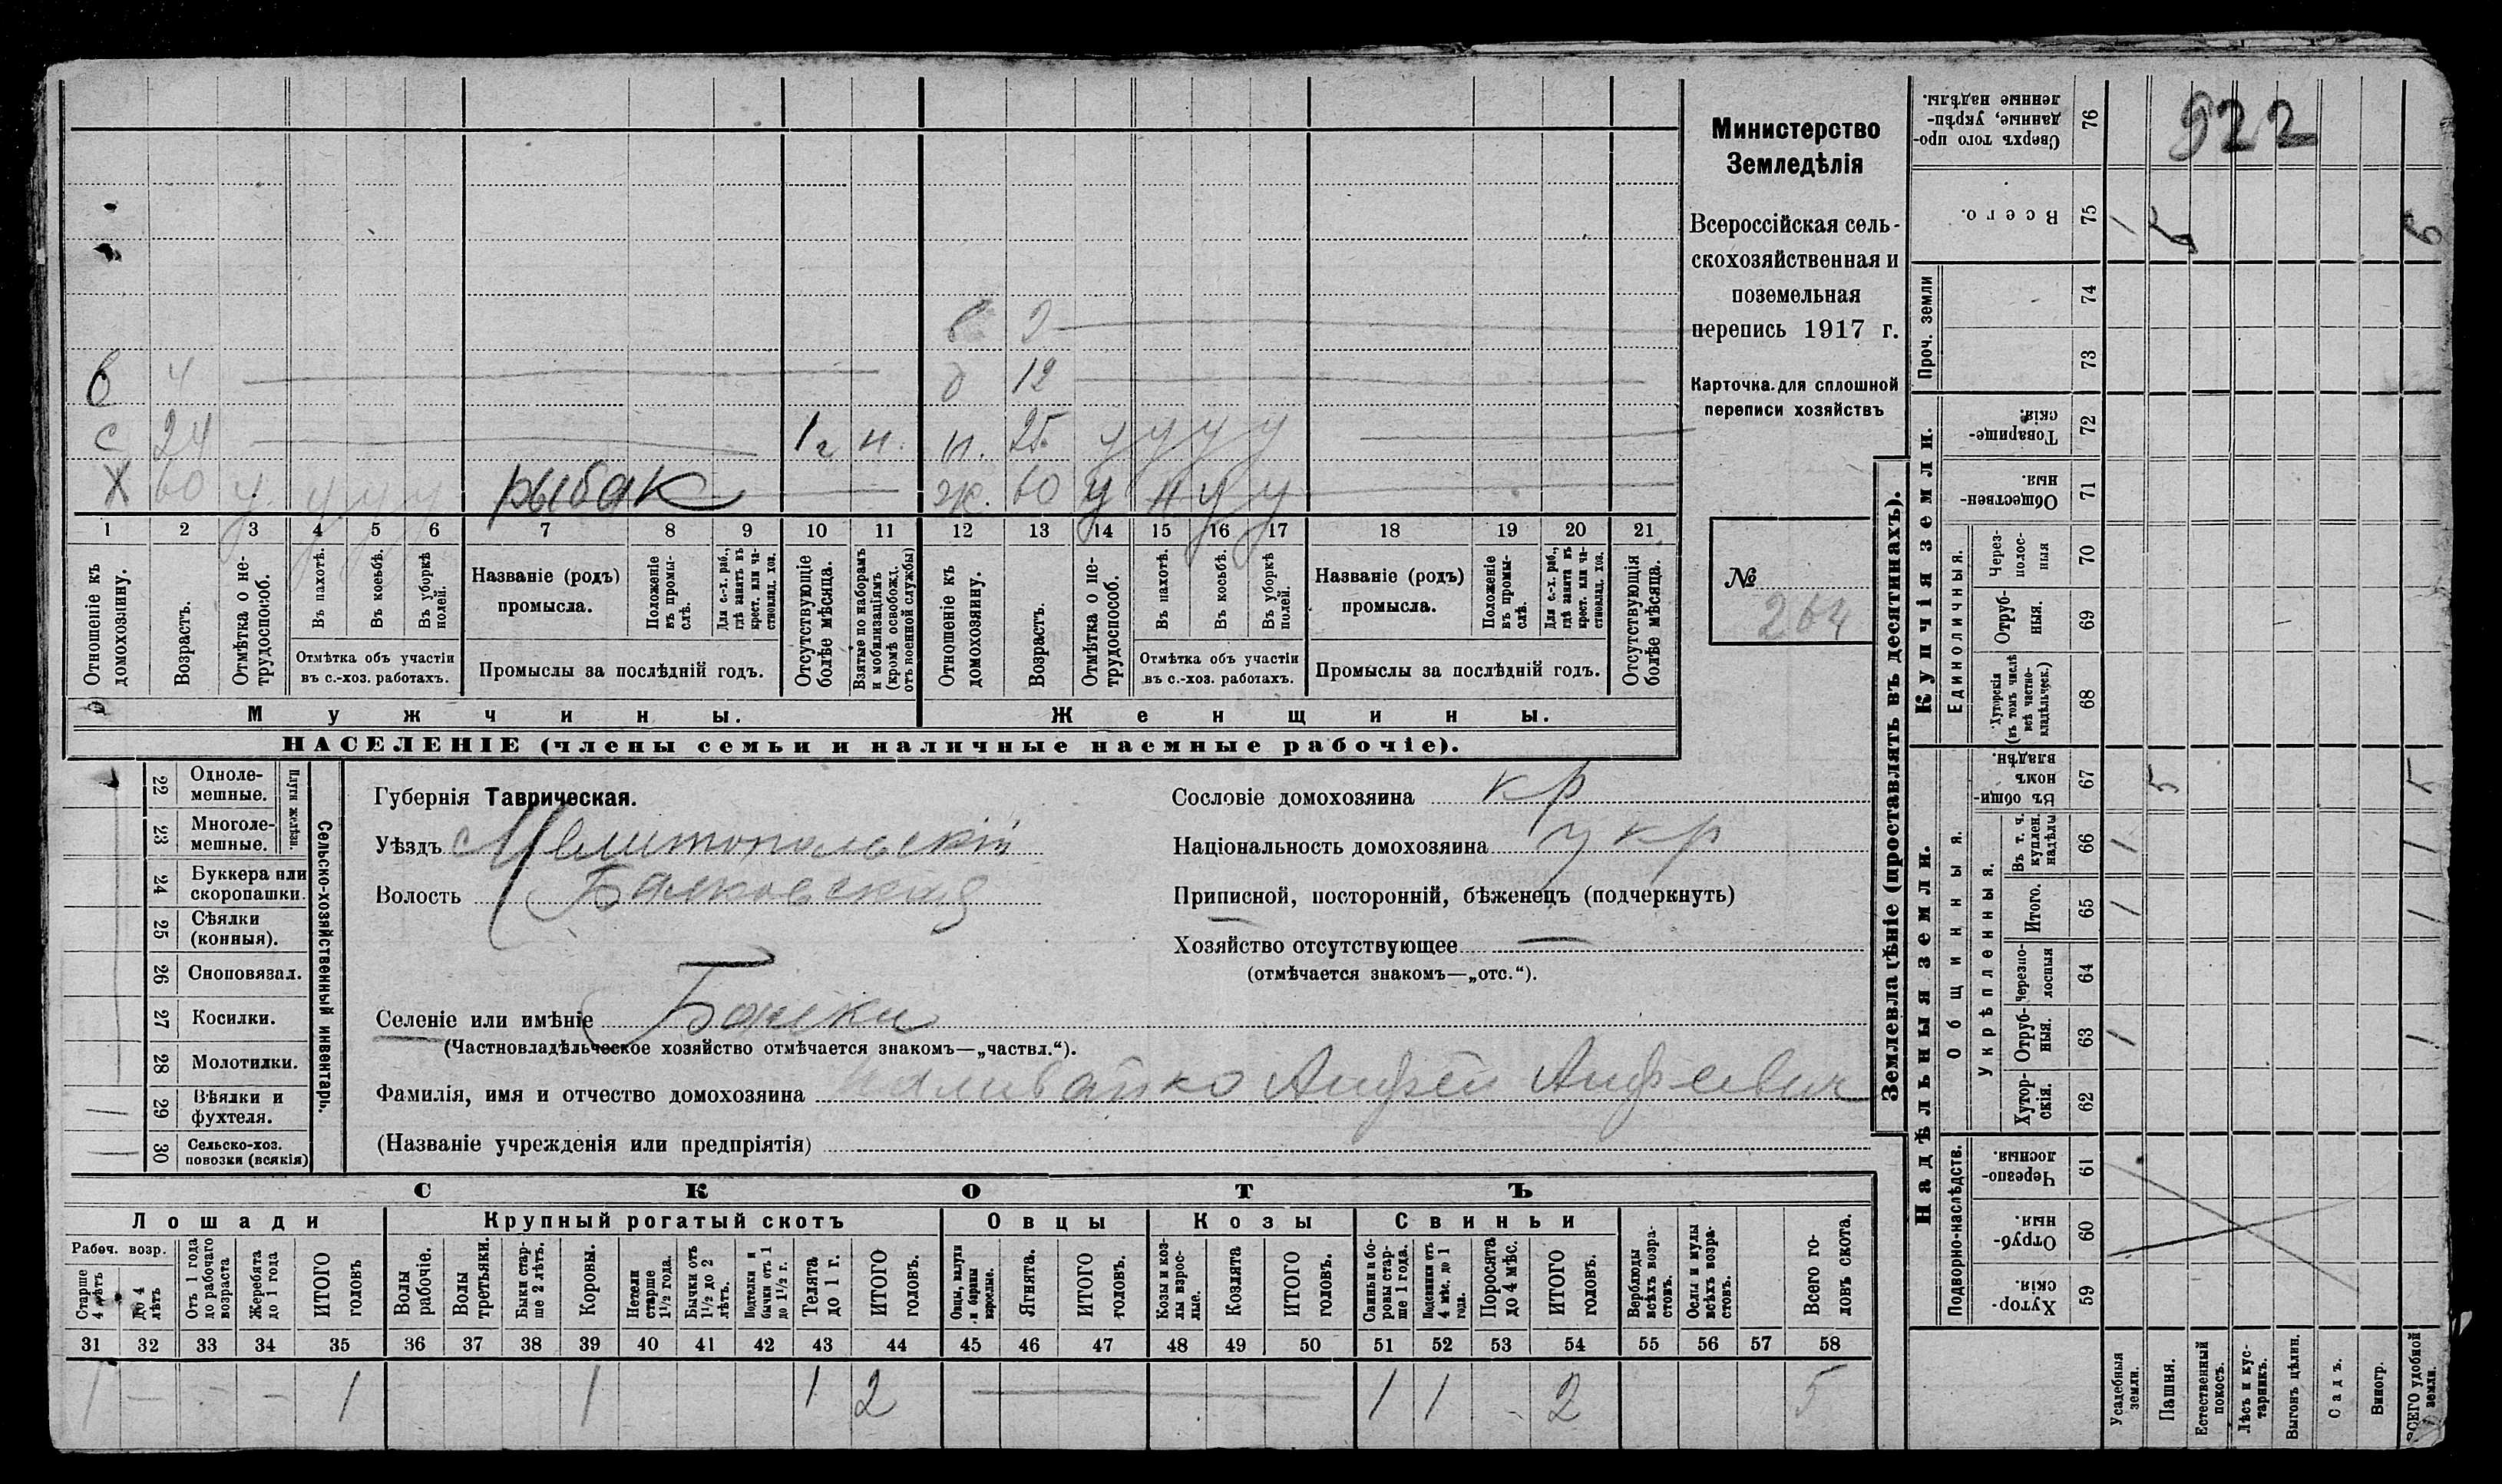 922
Министерство
Земледѣлія
Всероссійская сель-
скохозяйственная и
поземельная
перепись 1917 г.
Карточка для сплошной
переписи хозяйствъ
№
264
в 2
в 4 д 12
с 24 1 г н. н. 25 у у у у
Х 60 у у у у рыбак ж. 60 у н у у
1 2 3 4 5 6 7 8 9 10 11 12 13 14 15 16 17 18 19 20 21
Отношеніе къ домохозяину.
Возрастъ.
Отмѣтка о не-трудоспособ.
Въ пахотѣ.
Въ косьбѣ.
Въ уборкѣ полей.
Отмѣтка объ участіи
въ с.-хоз. работахъ.
Названіе (родъ)
промысла.
Положеніе въ промы-слѣ.
Для с.-х. раб., гдѣ занятъ въ крест. или ча-стновлад. хоз.
Промыслы за послѣдній годъ.
Отсутствующіе болѣе мѣсяца.
Взятые по наборамъ и мобилизаціямъ (кромѣ освобожд. отъ военной службы)
Отношеніе къ домохозяину.
Возрастъ.
Отмѣтка о не-трудоспособ.
Въ пахотѣ.
Въ косьбѣ.
Въ уборкѣ полей.
Отмѣтка объ участіи
въ с.-хоз. работахъ.
Названіе (родъ)
промысла.
Положеніе въ промы-слѣ.
Для с.-х. раб., гдѣ занята въ крест. или ча-стновлад. хоз.
Промыслы за послѣдній годъ.
Отсутствующія болѣе мѣсяца.
Мужчины. Женщины.
НАСЕЛЕНІЕ (члены семьи и наличные наемные рабочіе).
Сельско-хозяйственный инвентарь.
Плуги желѣзн.
22 Одноле-
мешные.
23 Многоле-
мешные.
24 Буккера или
скоропашки.
25 Сѣялки
(конныя).
26 Сноповязал.
27 Косилки.
28 Молотилки.
29 Вѣялки и
фухтеля.
30 Сельско-хоз.
повозки (всякія)
Губернія Таврическая.
Уѣздъ Мелитопольскій
Волость Балковская
Селеніе или имѣніе Балки
(Частновладѣльческое хозяйство отмѣчается знакомъ—„частвл.“).
Фамилія, имя и отчество домохозяина
(Названіе учрежденія или предпріятія)
Сословіе домохозяина кр
Національность домохозяина укр
Приписной, посторонній, бѣженецъ (подчеркнуть)
Хозяйство отсутствующее —
(отмѣчается знакомъ—„отс.“).
СКОТЪ
Лошади Крупный рогатый скотъ Овцы Козы Свиньи
Рабоч. возр.
Старше 4 лѣтъ
До 4 лѣтъ
Отъ 1 года до рабочаго возраста
Жеребята до 1 года
ИТОГО головъ
Волы рабочіе.
Волы третьяки.
Быки стар-ше 2 лѣтъ.
Коровы.
Нетели старше 1½ года.
Бычки отъ 1½ до 2 лѣтъ.
Подтелки и бычки отъ 1 до 1½ г.
Телята до 1 г.
ИТОГО головъ.
Овцы, валухи и бараны взрослые.
Ягнята.
ИТОГО головъ.
Козы и коз-лы взрос-лые.
Козлята
ИТОГО головъ.
Свиньи и бо-ровы стар-ше 1 года.
Подсвинки отъ 4 мѣс. до 1 года.
Поросята до 4 мѣс.
ИТОГО головъ.
Верблюды всѣхъ возра-стовъ.
Ослы и мулы всѣхъ возра-стовъ.
Всего го-ловъ скота.
31 32 33 34 35 36 37 38 39 40 41 42 43 44 45 46 47 48 49 50 51 52 53 54 55 56 57 58
1 — - - 1 1 1 2 1 1 - 2 5
Землевладѣніе (проставлять въ десятинахъ).
Купчія земли.
Надѣльныя земли.
Сверхъ того про-данные, укрѣп-ленные надѣлы. 76
Всего. 75 1 6 6
Проч. земли
74
73
Товарище-скія. 72
Обществен-ныя. 71
Единоличныя.
Через-полос-ныя 70
Отруб-ныя. 69
Хуторскія (въ томъ числѣ всѣ частно-владѣльческ.) 68
Общинныя.
Въ общи-номъ владѣн. 67 5 5
Укрѣпленныя.
Въ т. ч. куплен. надѣлы 66 1 1
Итого. 65 1 1
Черезпо-лосныя 64
Отруб-ныя. 63 1 1
Хутор-скія. 62
Подворно-наслѣдств.
Черезпо-лосныя. 61
Отруб-ныя. 60
Хутор-скія. 59
Усадебныя земли.
Пашня.
Естественный покосъ.
Лѣсъ и кус-тарникъ.
Выгонъ цѣлин.
Садъ.
Виногр.
ВСЕГО удобной земли.